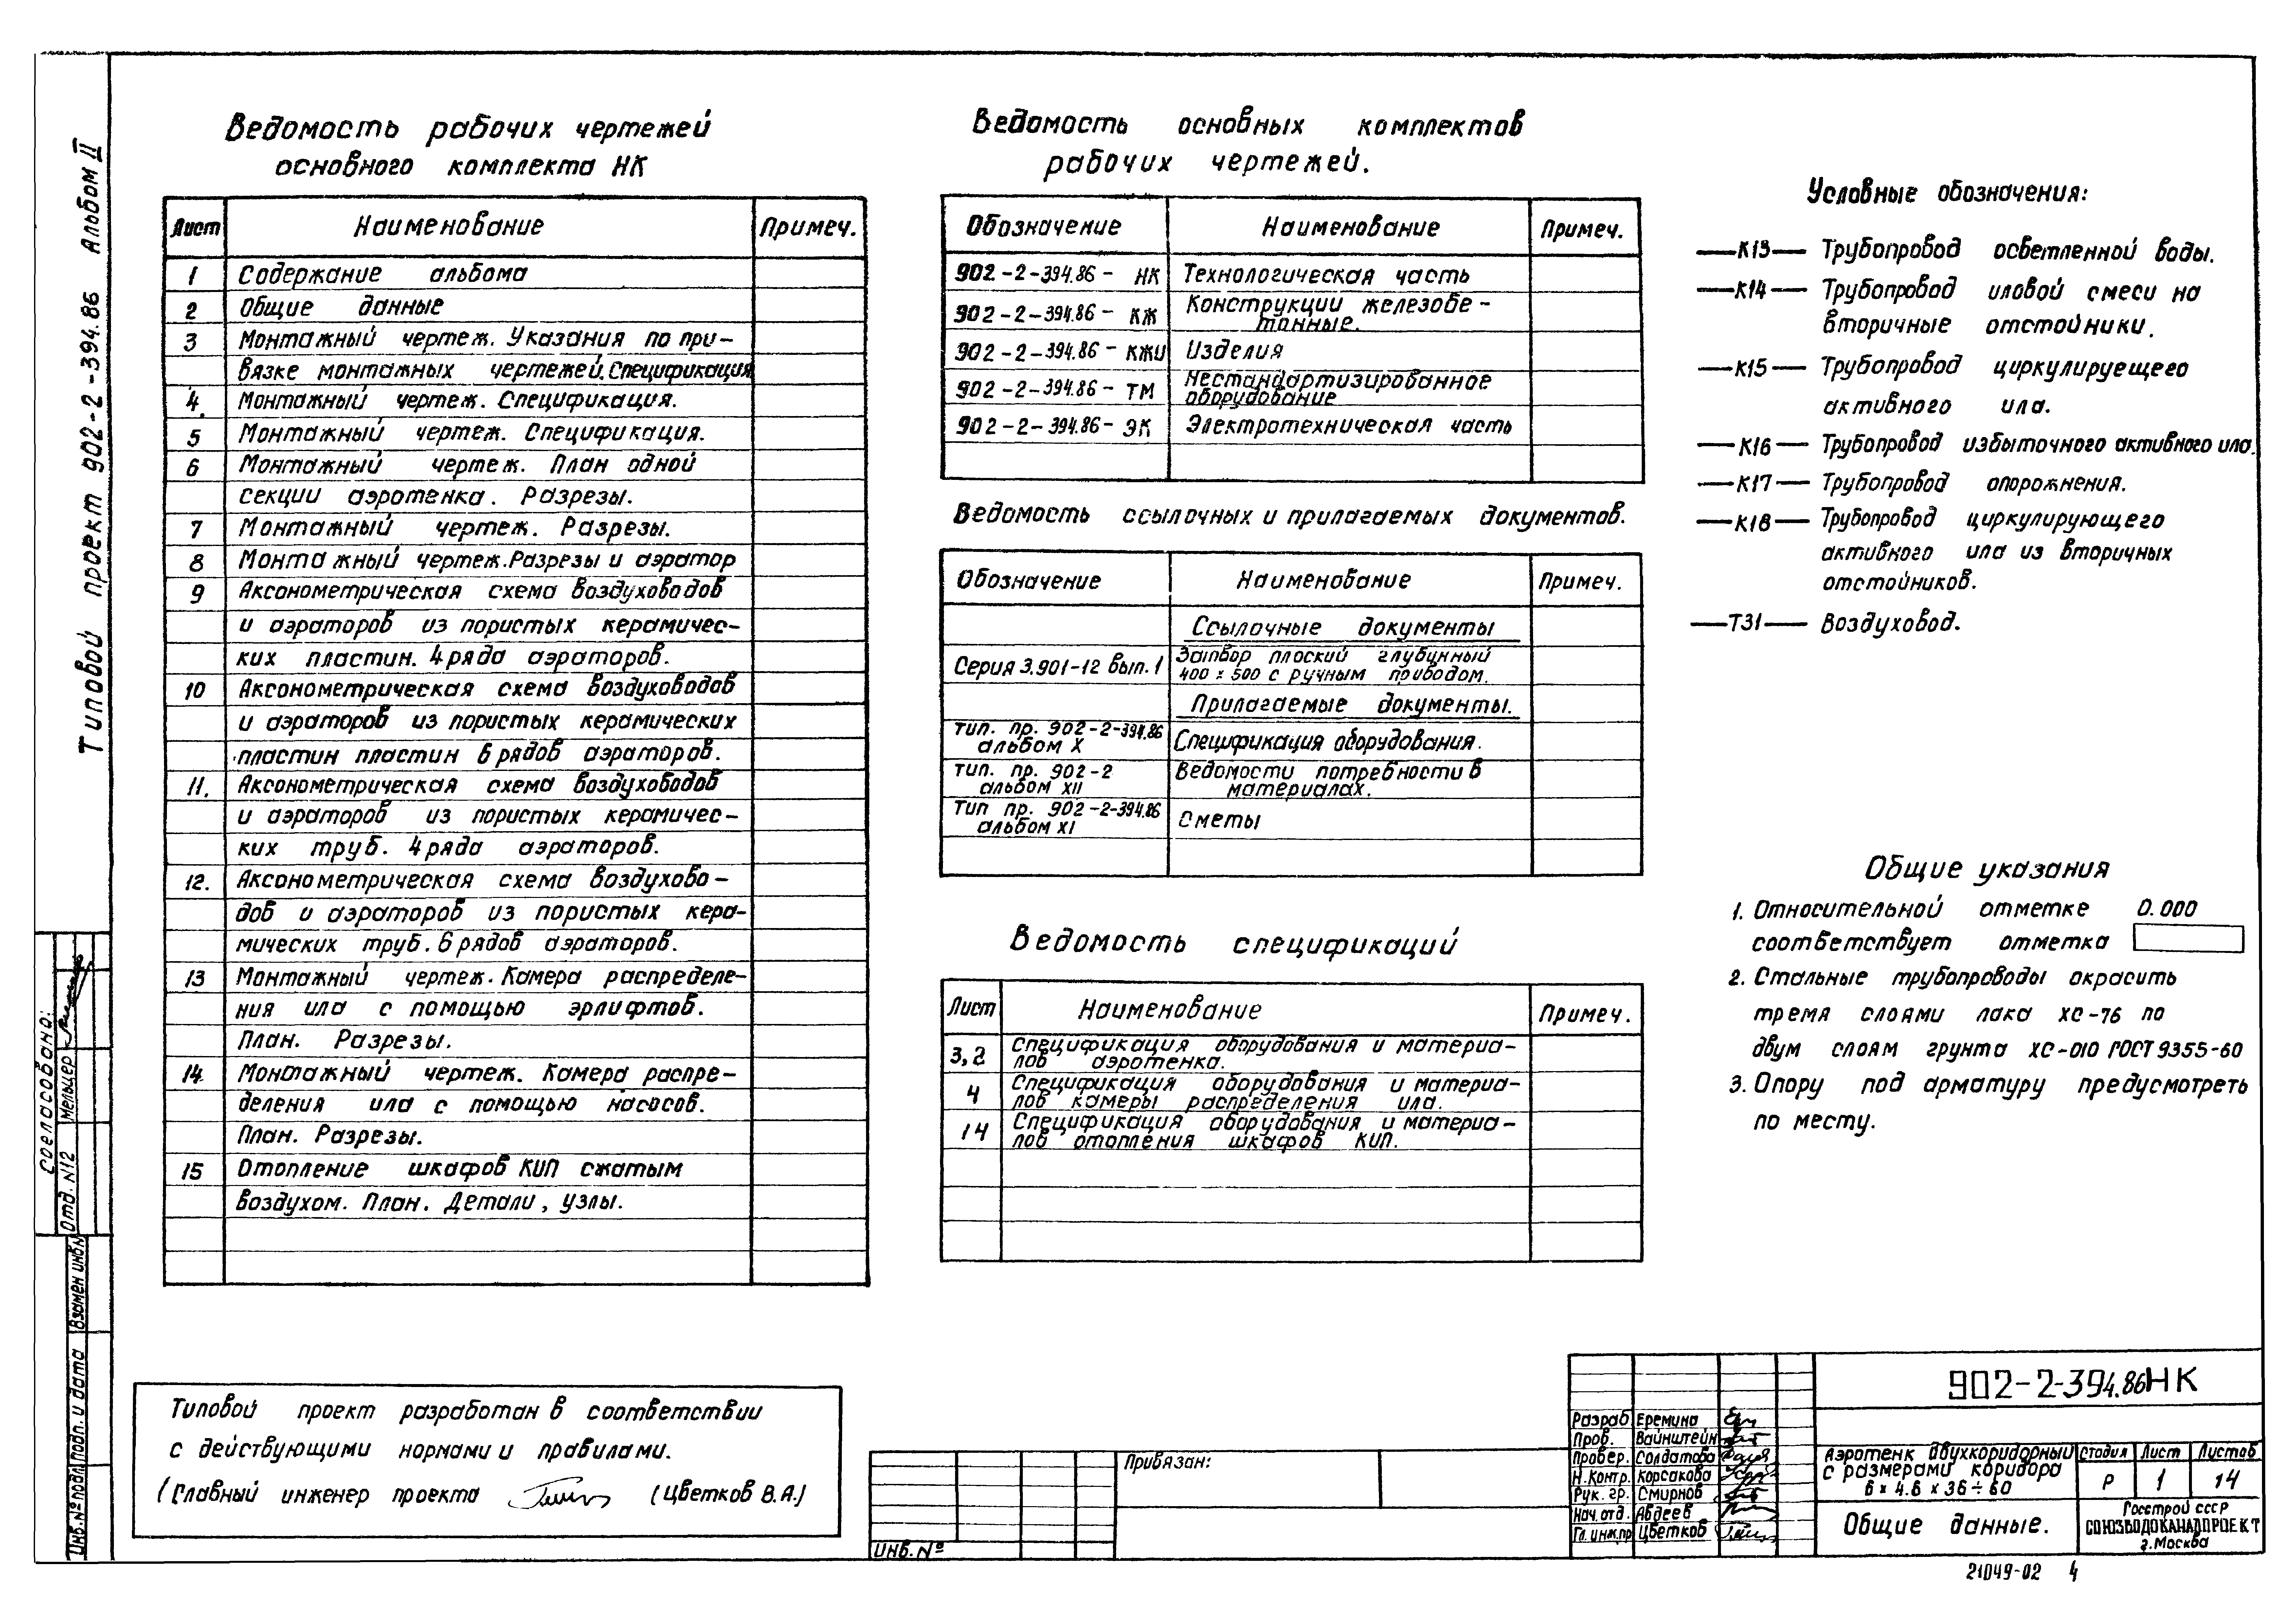 Типовой проект 902-2-394.86 Альбом II
Ведомость рабочих чертежей
основного комплекта НК
Лист Наименование Примеч.
1 Содержание альбома
2 Общие данные
3 Монтажный чертеж. Указания по при-
вязке монтажных чертежей. Спецификация
4. Монтажный чертеж. Спецификация.
5 Монтажный чертеж. Спецификация.
6 Монтажный чертеж. План одной
секции аэротенка. Разрезы.
7 Монтажный чертеж. Разрезы.
8 Монтажный чертеж. Разрезы и аэратор
9 Аксонометрическая схема воздуховодов
и аэраторов из пористых керамичес-
ких пластин. 4 ряда аэраторов.
10 Аксонометрическая схема воздуховодов
и аэраторов из пористых керамических
пластин пластин 6 рядов аэраторов.
11. Аксонометрическая схема воздуховодов
и аэраторов из пористых керамичес-
ких труб. 4 ряда аэраторов.
12. Аксонометрическая схема воздухово-
дов и аэраторов из пористых кера-
мических труб. 6 рядов аэраторов.
13 Монтажный чертеж. Камера распределе-
ния ила с помощью эрлифтов.
План. Разрезы.
14 Монтажный чертеж. Камера распре-
деления ила с помощью насосов.
План. Разрезы.
15 Отопление шкафов КИП сжатым
воздухом. План. Детали, узлы.
Типовой проект разработан в соответствии
с действующими нормами и правилами.
(Главный инженер проекта (Цветков В.А.)
Ведомость основных комплектов
рабочих чертежей.
Обозначение Наименование Примеч.
902-2-394.86- НК Технологическая часть
902-2-394.86- КЖ Конструкции железобе-
тонные.
902-2-394.86- КЖИ Изделия
902-2-394.86- ТМ Нестандартизированное
оборудование
902-2-394.86- ЭК Электротехническая часть
Ведомость ссылочных и прилагаемых документов.
Обозначение Наименование Примеч.
Ссылочные документы
Серия 3.901-12 вып. 1 Затвор плоский глубинный
400 х 500 с ручным приводом.
Прилагаемые документы.
тип. пр. 902-2-394.86
альбом X Спецификация оборудования.
тип. пр. 902-2
альбом XII Ведомости потребности в
материалах.
Тип пр. 902-2-394.86
альбом XI Сметы
Ведомость спецификаций
Лист Наименование Примеч.
3,2 Спецификация оборудования и материа-
лов аэротенка.
4 Спецификация оборудования и материа-
лов камеры распределения ила.
14 Спецификация оборудования и материа-
лов отопления шкафов КИП.
Условные обозначения:
—К13— Трубопровод осветленной воды.
—К14— Трубопровод иловой смеси на
вторичные отстойники.
—К15— Трубопровод циркулируещего
активного ила.
—К16— Трубопровод избыточного активного ила.
—К17— Трубопровод опорожнения.
—К18— Трубопровод циркулирующего
активного ила из вторичных
отстойников.
—Т31— Воздуховод.
Общие указания
1. Относительной отметке 0.000
соответствует отметка
2. Стальные трубопроводы окрасить
тремя слоями лака ХС-76 по
двум слоям грунта ХС-010 ГОСТ 9355-60
3. Опору под арматуру предусмотреть
по месту.
Согласовано:
Отд. N12 Мельцер
Взамен инв.N
Подп. и дата
Инв. № подл.
Привязан:
Инв. №
902-2-394.86 НК
Разраб Еремина
Пров. Вайнштейн
Провер. Солдатова
Н.Контр. Корсакова
Рук. гр. Смирнов
Нач. отд. Авдеев
Гл. инж.пр Цветков
Аэротенк двухкоридорный
с размерами коридора
6 х 4.6 х 36 ÷ 60
Стадия Лист Листов
Р 1 14
Общие данные.
Госстрой СССР
СОЮЗВОДОКАНАЛПРОЕКТ
г. Москва
21049-02 4